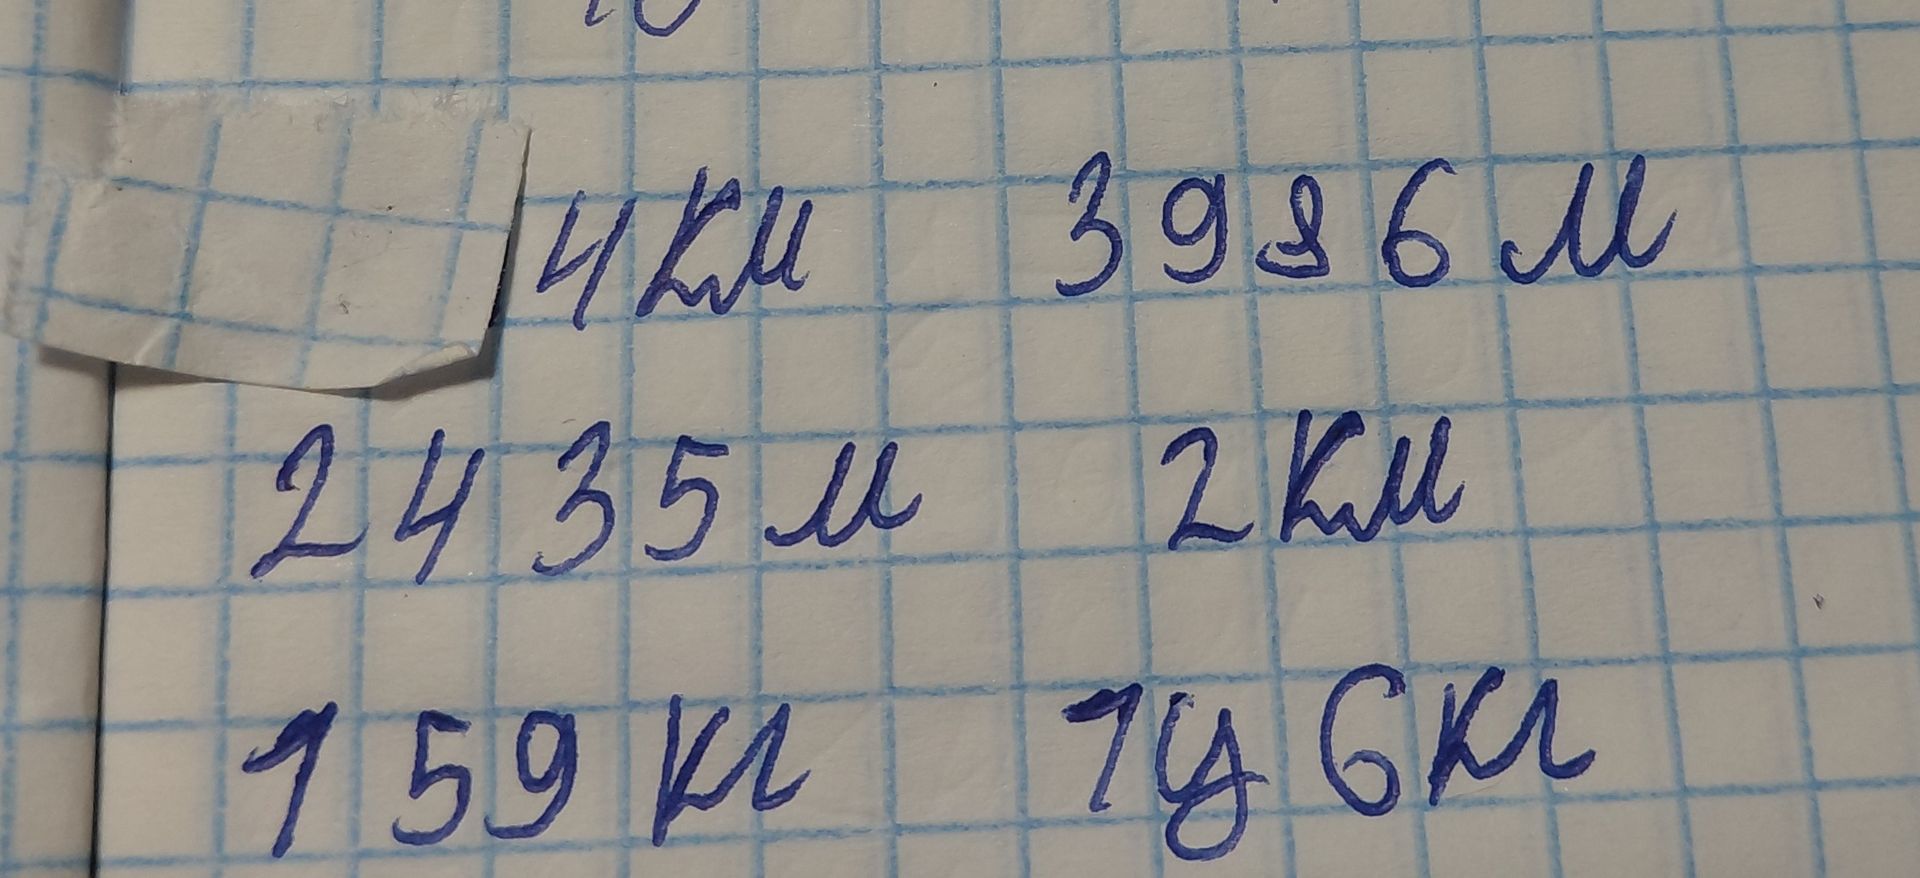 4км 3986м
2435м 2км
159кг 1ц 6кг